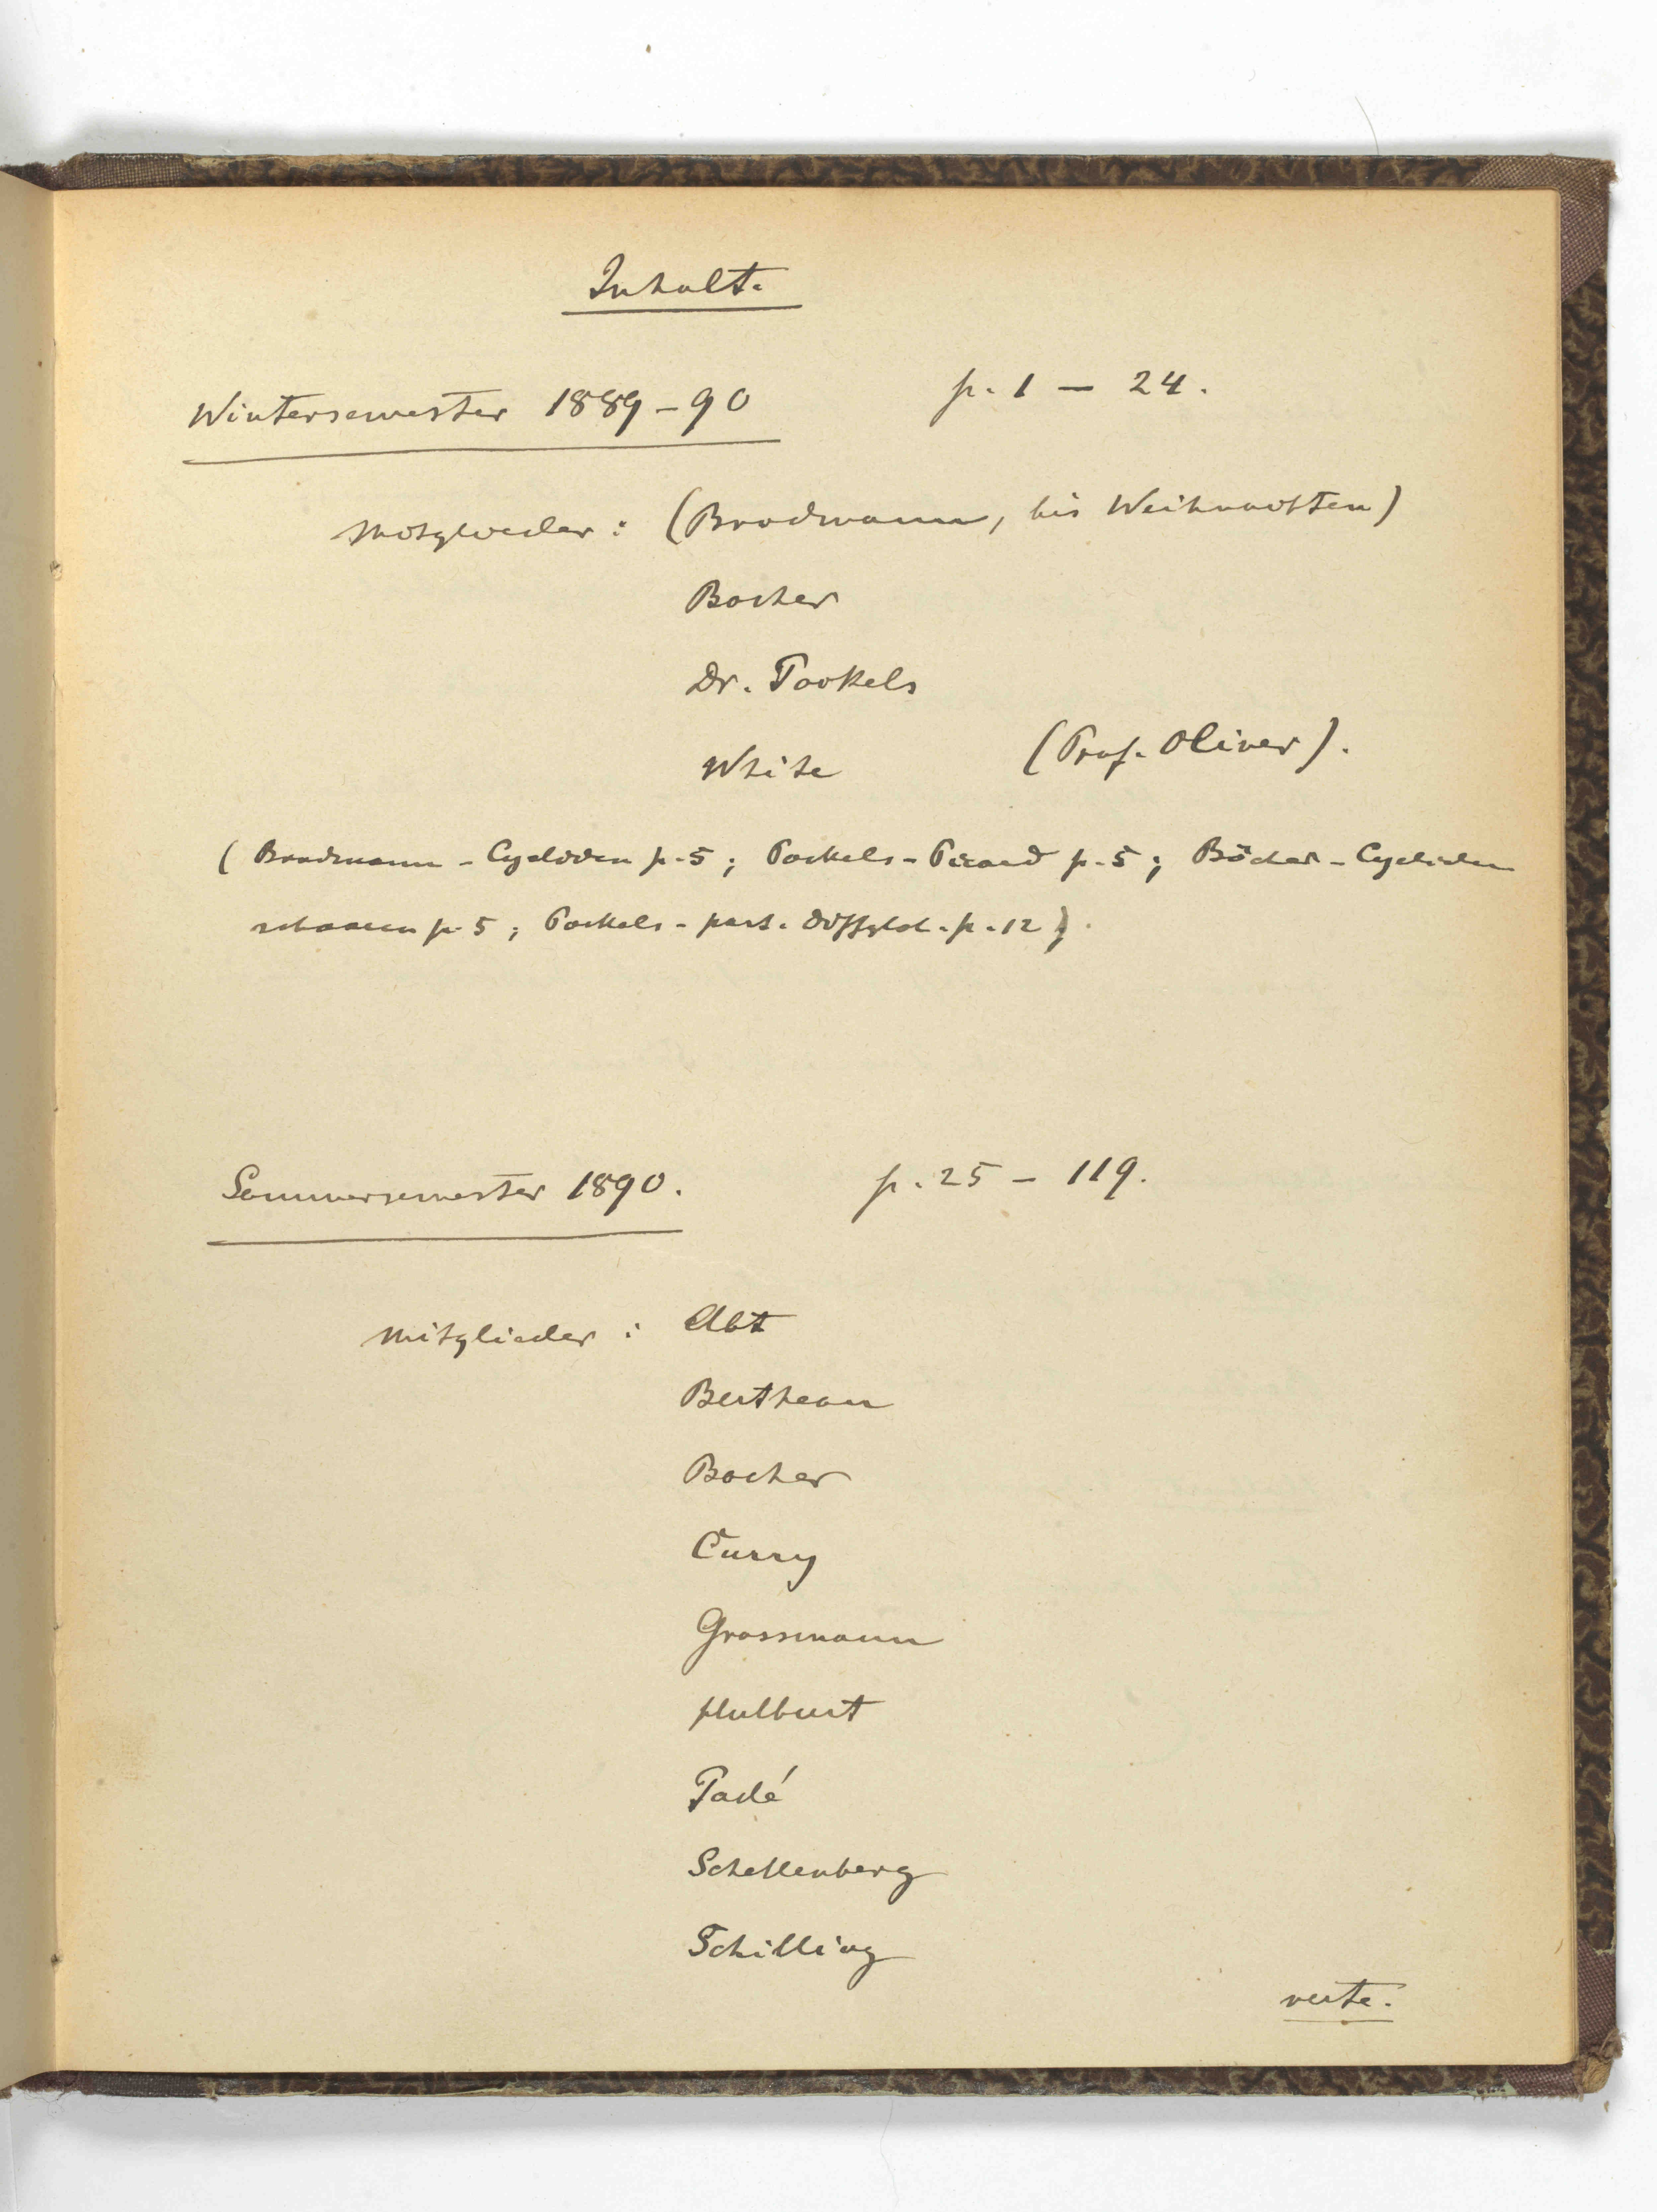 Inhalt.
Wintersemester 1889-90 p. 1 — 24.
Mitglieder: (Brodmann, bis Weihnachten)
Bocher
Dr. Pockels
White (Prof. Oliver).
(Brodmann - Cycliden p. 5; Pockels - Picard p. 5; Böcher - Cycliden
scharen p. 5; Pockels - part. Diffglch. p. 12).
Sommersemester 1890. p. 25 - 119.
Mitglieder: Abt
Bertheau
Bocher
Curry
Grassmann
Hulburt
Padé
Schellenberg
Schilling
verte.